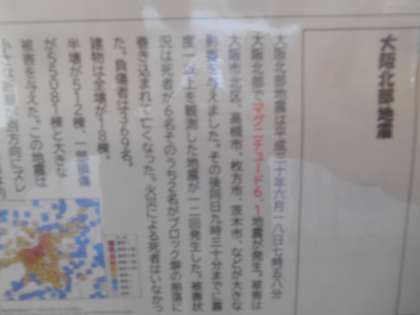 大阪北部地震
大阪北部地震は平成三十年六月一八日七時五八分
大阪北部でマグニチュード6.1地震が発生。被害は
大阪市北区、高槻市、枚方市、茨木市、などが大きな
影響を与えました。その後同日九時三十分までに震
度一以上を観測した地震が一二回発生した。被害状
況は死者が6名そのうち2名がブロック塀の崩落に
巻き込まれて亡くなった。火災による死者はいなかっ
た。負傷者は369名。
建物は全壊が18棟、
半壊が512棟、一部損壊
が55081棟と大きな
被害を与えた。この地震は